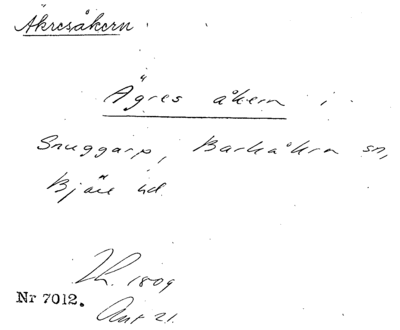 Äkresåkern.
Ägres åkern i
Snuggarp, Barkåkra sn,
Bjäre hd.
Lk. 1809
Nr 7012.
Akt 21.